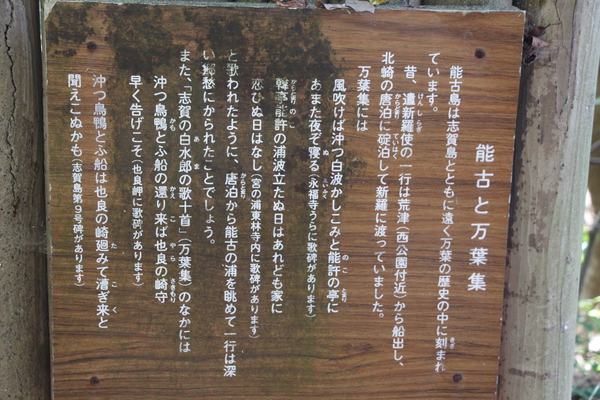 能古と万葉集
能古島は志賀島とともに遠く万葉の歴史の中に刻まれ
ています。
昔、遣新羅使の一行は荒津（西公園付近）から船出し、
北崎の唐泊に碇泊して新羅に渡っていました。
万葉集には
風吹けば沖つ白波かしこみと能許の亭に
あまた夜ぞ寝る（永福寺うらに歌碑があります）
韓亭能許の浦波立たぬ日はあれども家に
恋ひぬ日はなし（宮の浦東林寺内に歌碑があります）
と歌われたように、唐泊から能古の浦を眺めて一行は深
い郷愁にかられたことでしょう。
また、「志賀の白水郎の歌十首」（万葉集）のなかには
沖つ鳥鴨とふ船の還り来ば也良の崎守
早く告げこそ（也良岬に歌碑があります）
沖つ鳥鴨とふ船は也良の崎廻みて漕ぎ来と
聞えこぬかも（志賀島第9号碑があります）